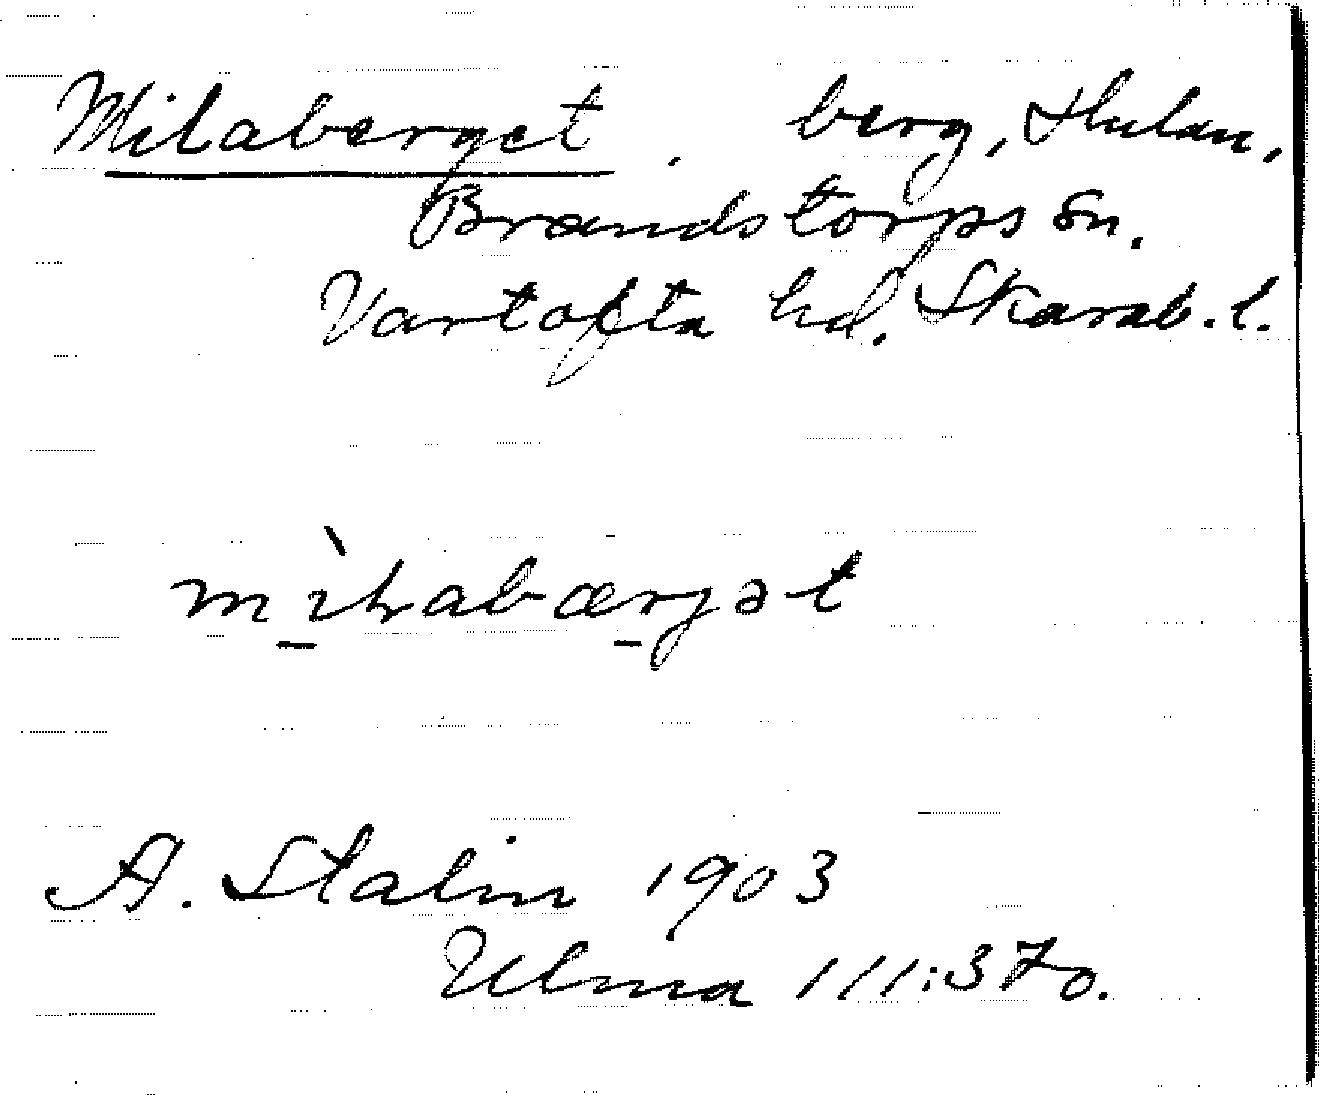 Milaberget. berg, Hulan,
Brandstorps sn.
Vartofta hd. Skarab. l.
A. Stalin 1903
Ulma 111:370.